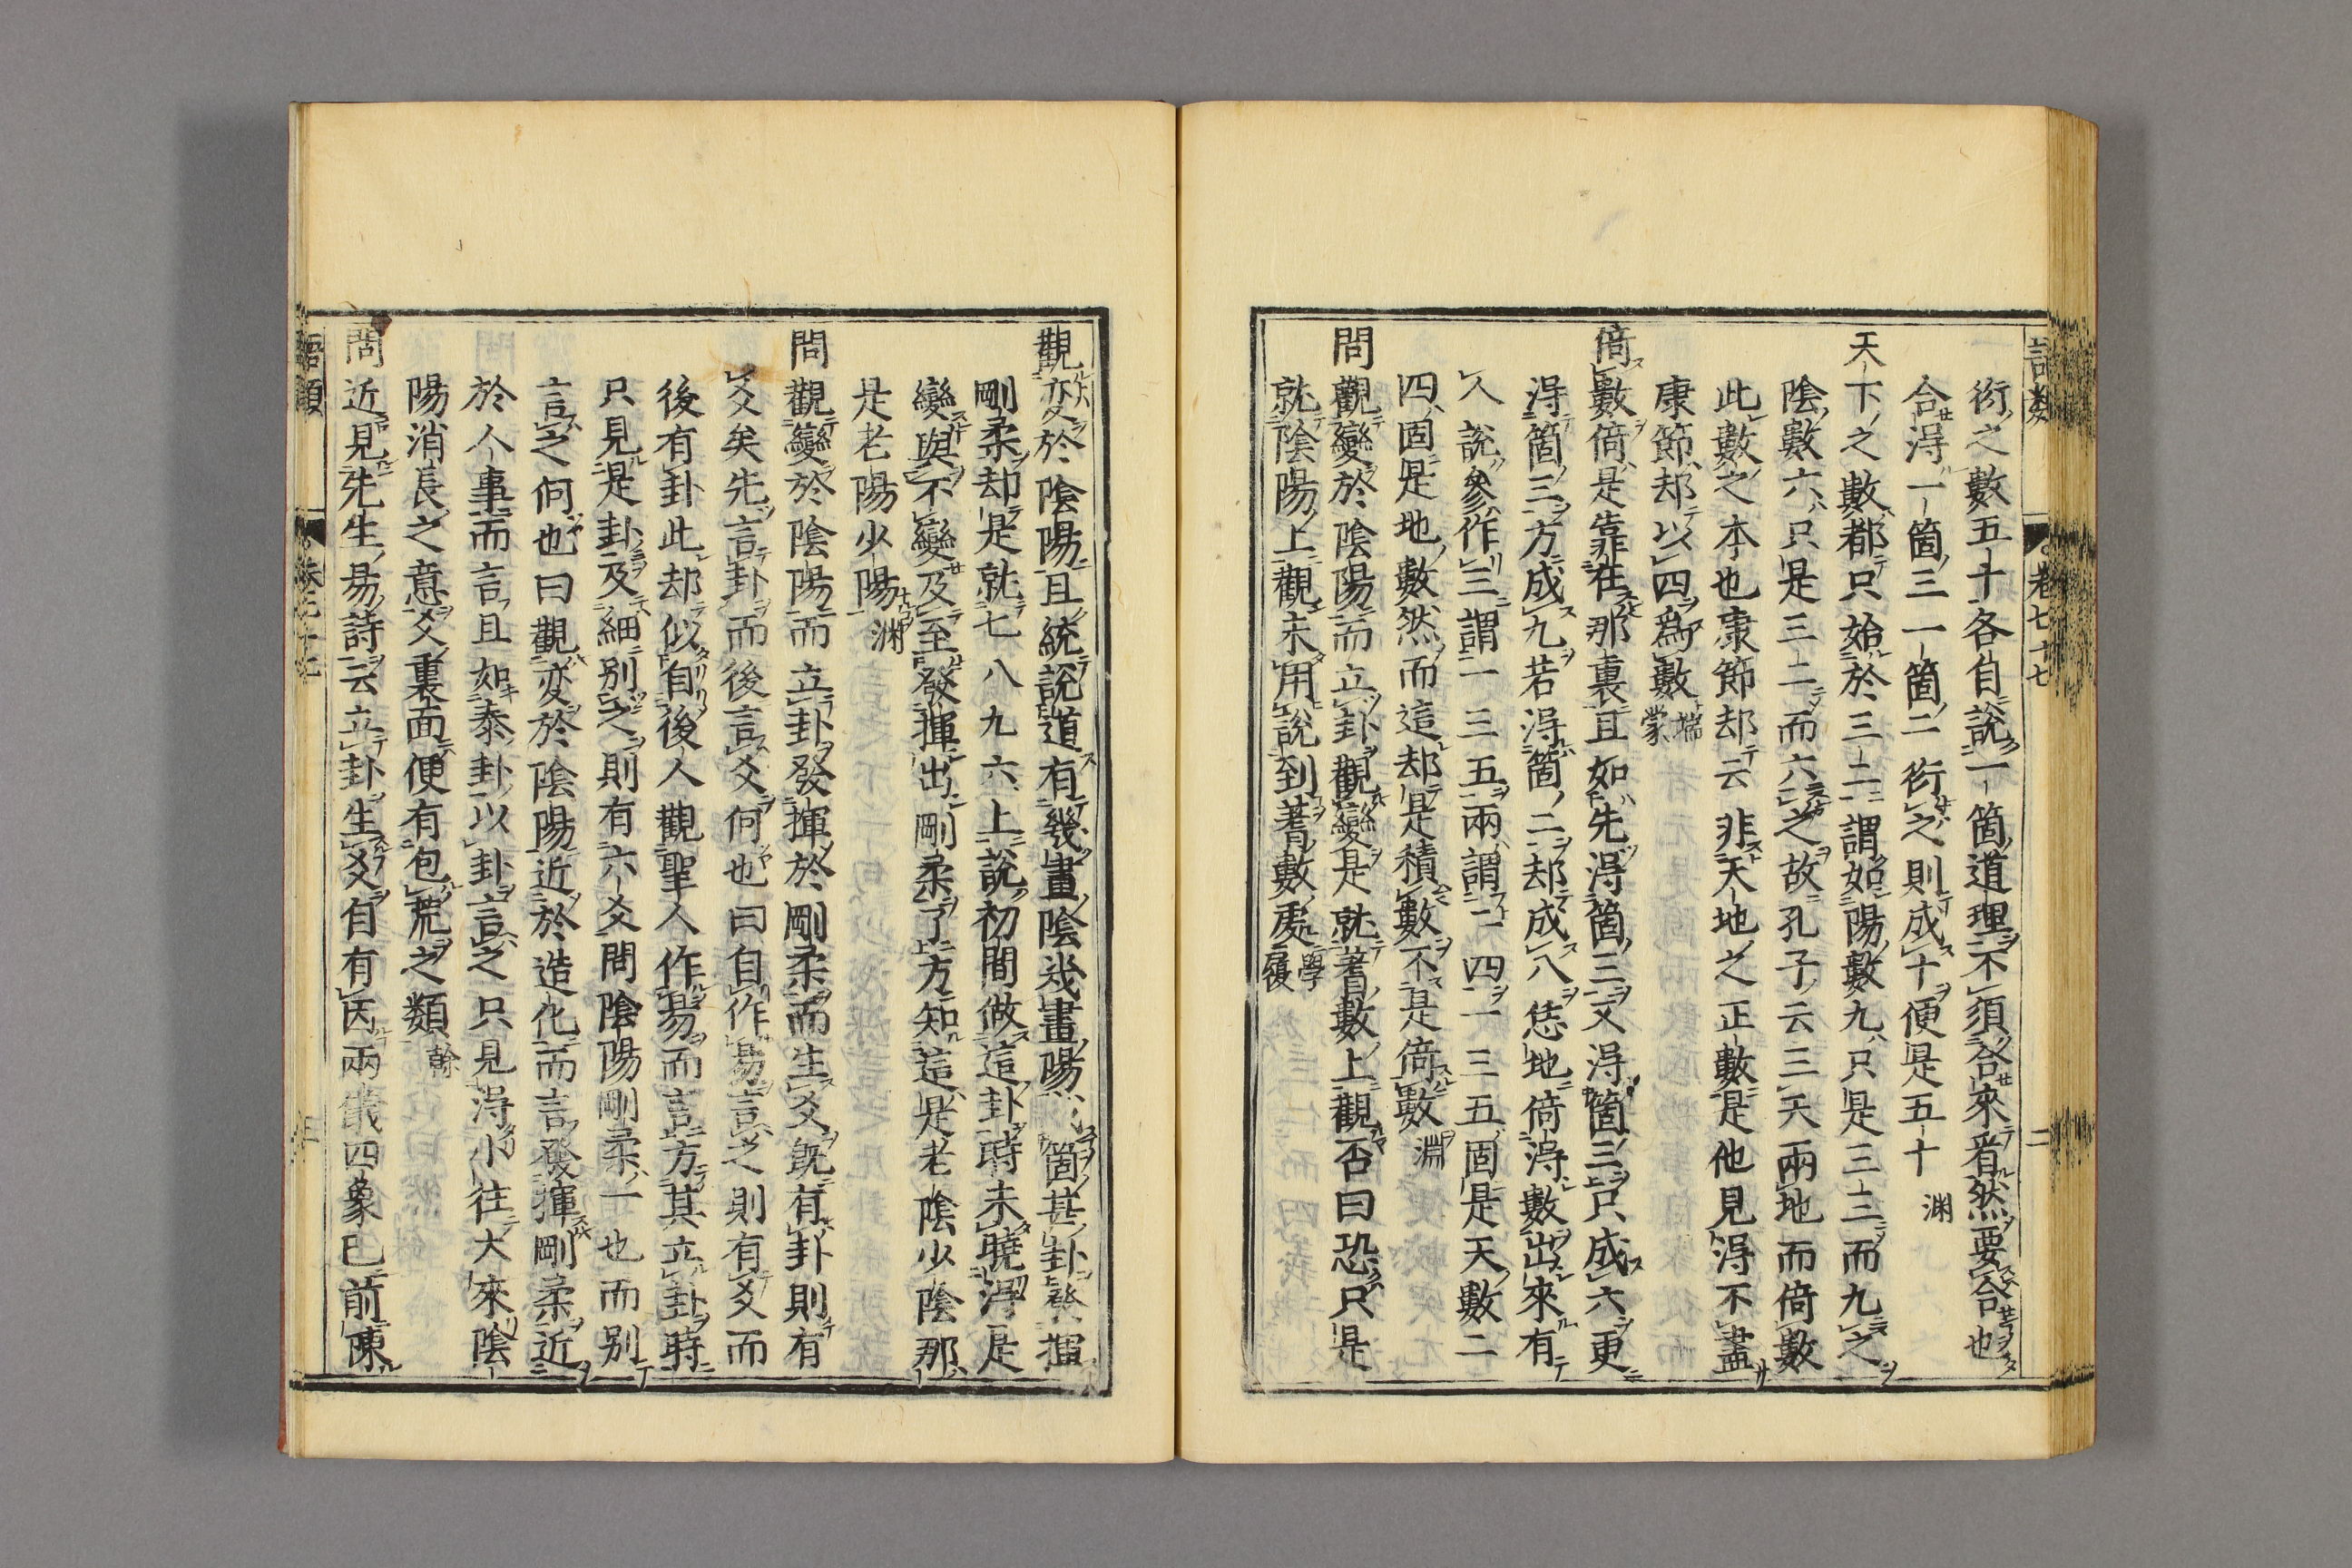 語類 卷七十七 二
衍之數五十各自說一箇道理不須合來看然要合也
合得一箇三一箇二衍之則成十便是五十 渊
天下之數都只始於三二謂如陽數九只是三三而九之
陰數六只是三二而六之故孔子云三天兩地而倚數
此數之本也康節却云非天地之正數是他見得不盡
康節却以四爲數 端蒙
倚數倚是靠在那裏且如先得箇三又得箇三只成六更
得箇三方成九若得箇二却成八恁地倚得數出來有
人說參作三謂一三五兩謂二四一三五固是天數二
四固是地數然而這却是積數不是倚數 淵
問觀變於陰陽而立卦觀變是就蓍數上觀否曰恐只是
就陰陽上觀未用說到蓍數處 學履
觀変於陰陽且統說道有幾畫陰幾畫陽箇甚卦發揮
剛柔却是就七八九六上說初間做這卦時未曉得是
變與不變及至發揮出剛柔了方知這是老陰少陰那
是老陽少陽 渊
問觀變於陰陽而立卦發揮於剛柔而生爻既有卦則有
爻矣先言卦而後言爻何也曰自作易言之則有爻而
後有卦此却似自後人觀聖人作易而言方其立卦時
只見是卦及細別之則有六爻問陰陽剛柔一也而別
言之何也曰觀変於陰陽近於造化而言發揮剛柔近
於人事而言且如泰卦以卦言之只見得小往大來陰
陽消長之意爻裏面便有包荒之類 榦
問近見先生易詩云立卦生爻自有因兩儀四象已前陳
語類 卷七十七